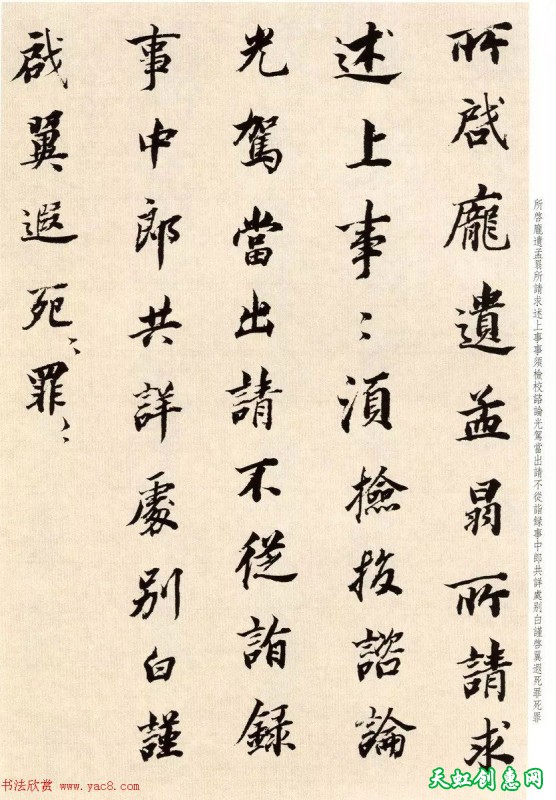 所啓龐遺孟晷所請求
述上事〻須檢校諮論
光駕當出請不從詣録
事中郎共詳處別白謹
啓翼遐死〻罪〻
所啓龐遺孟晷所請求述上事事須檢校諮論光駕當出請不從詣録事中郎共詳處別白謹啓翼遐死罪死罪
书法欣赏 www.yac8.com
天虹创惠网